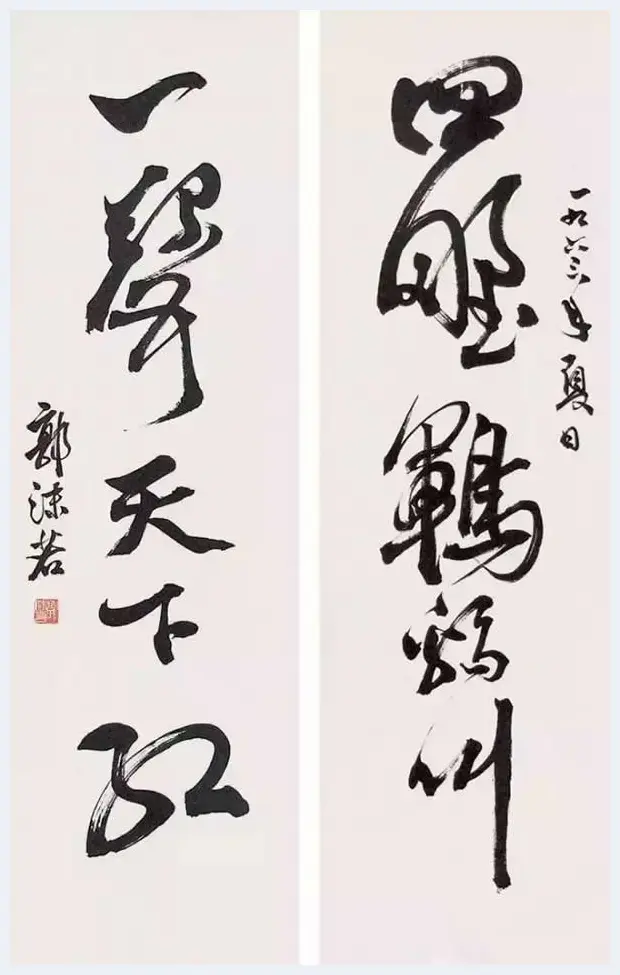 一九六年夏日
四野鶤鷄叫
一聲天下紅
郭沫若